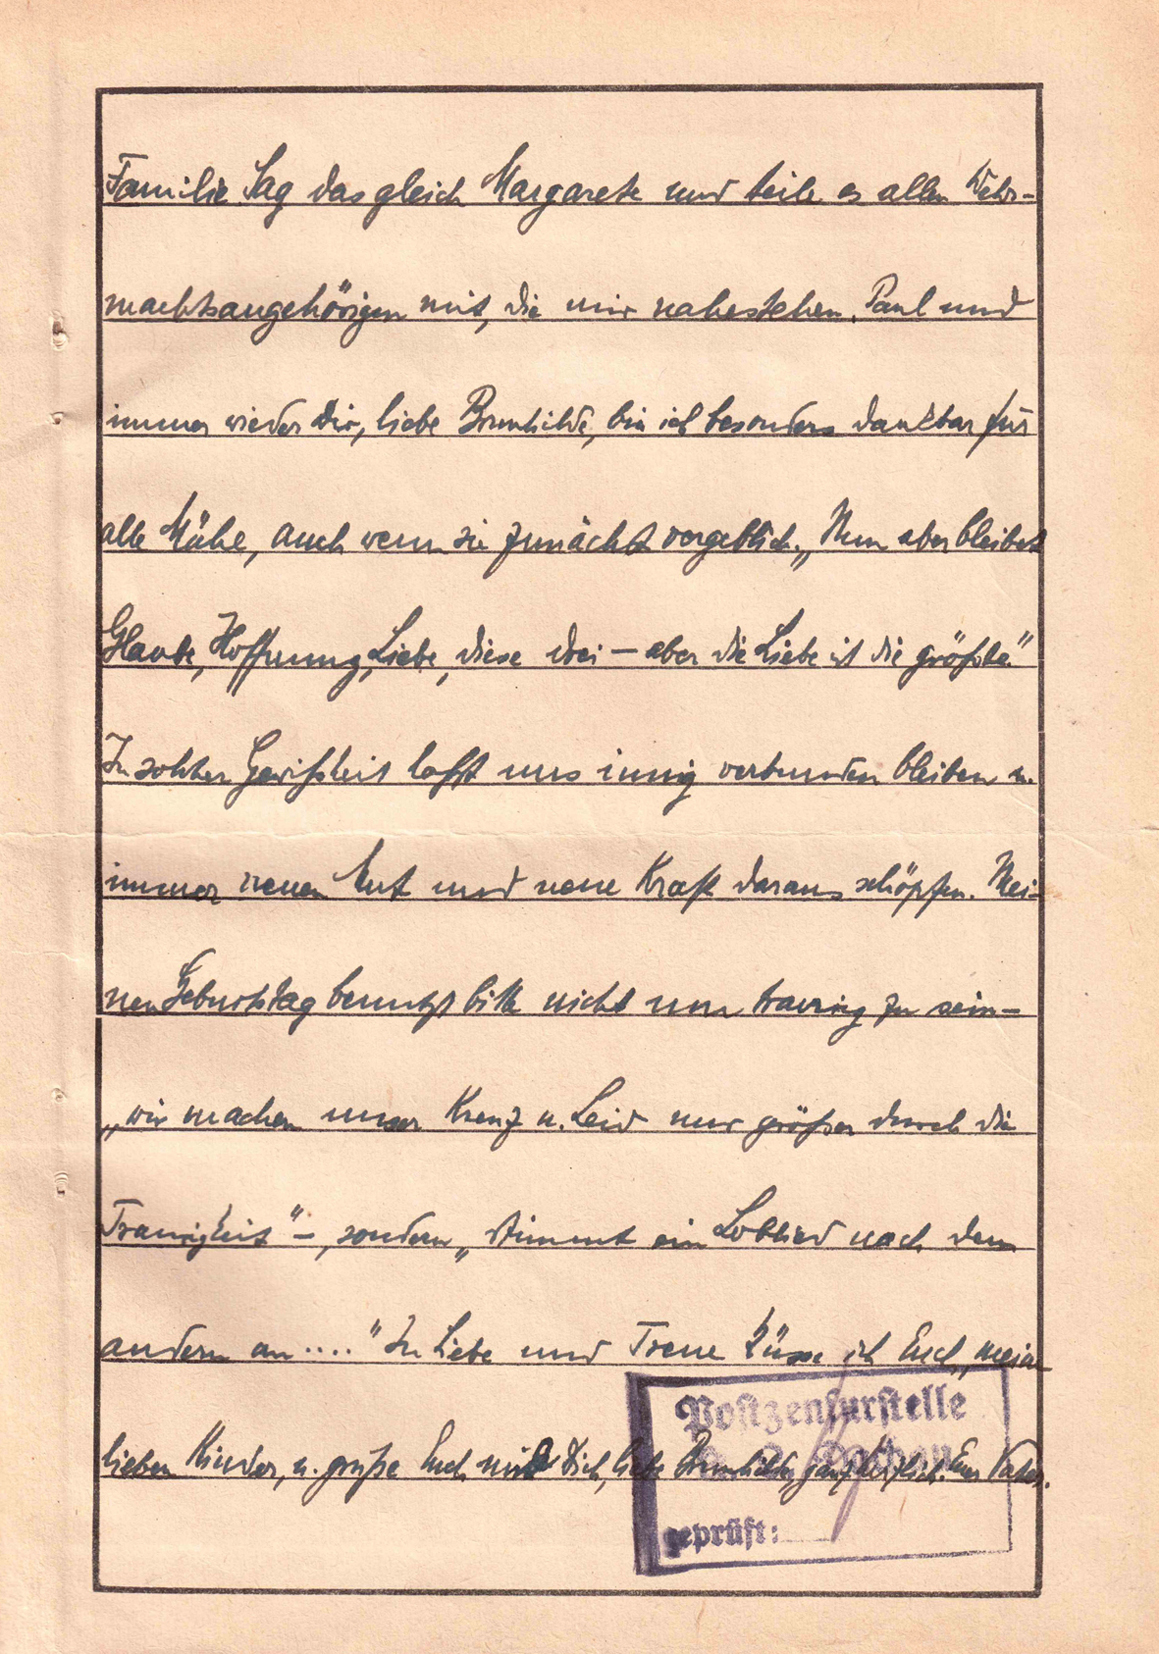 Familie. Sag das gleich Margarete und teile es allen Wehr-
machtsangehörigen mit, die mir nahestehen. Paul und
immer wieder Dir, liebe Brunhilde, bin ich besonders dankbar für
alle Mühe, auch wenn sie zunächst vergeblich. „Nun aber bleibet
Glaube, Hoffnung, Liebe, diese drei – aber die Liebe ist die größte."
In solcher Gewißheit laßt uns innig verbunden bleiben u.
immer neuen Mut und neue Kraft daraus schöpfen. Mei-
nen Geburtstag benutzt bitte nicht um traurig zu sein –
„wir machen unser Kreuz u. Leid nur größer durch die
Traurigkeit" –, sondern „stimmt ein Loblied nach dem
andern an...." In Liebe und Treue küsse ich Euch, meine
lieben Kinder, u. grüße Euch und Dich, liebe Brunhilde, ganz herzlich. Euer Vater.
Postzensurstelle
K. L. Dachau
geprüft: